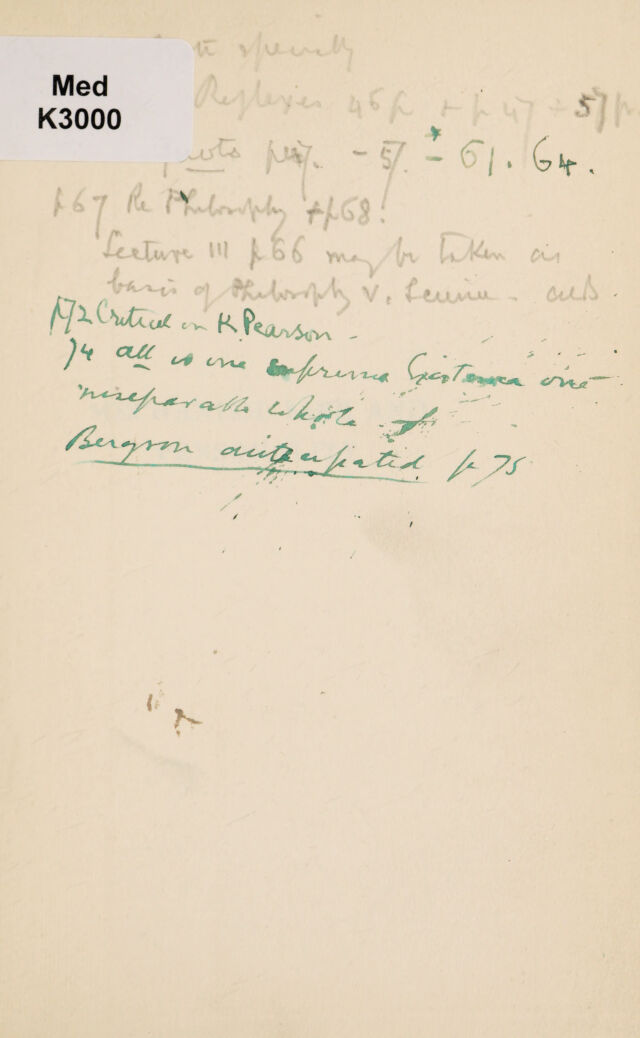 Med
K3000
specially
Reflexies 46p + p 47 - 57 p
quote p47. - 57. - 61. 64.
p67 Re Philosophy + p68.
Lecture III p66 may be taken as
basis of Philosophy v.
p72 Critical on K Pearson -
74 all is one supreme Existence one
inseparable whole
Bergson anticipated p 75